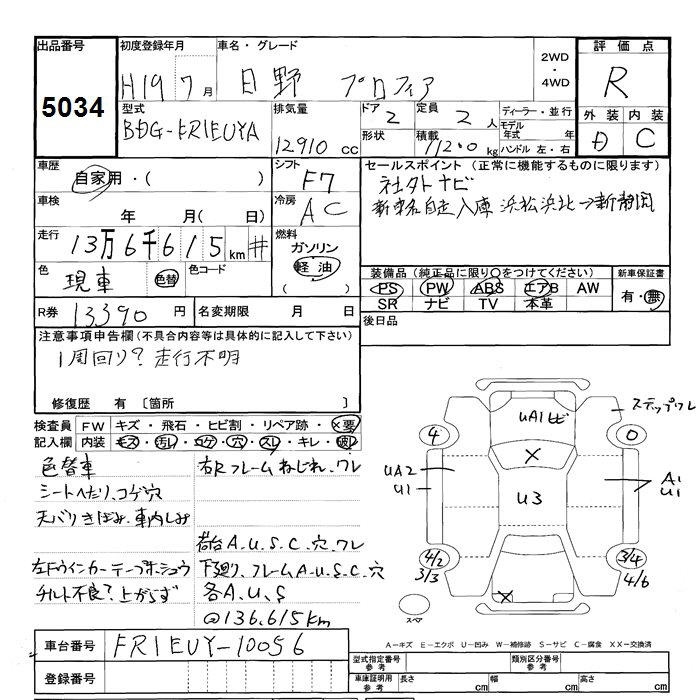 出品番号 初度登録年月 車名・グレード 2WD・4WD 評価点
5034 H19 7月 日野 プロフィア R
型式 排気量 ドア 定員 ディーラー・並行 外装 内装
BDG-FR1EUYA 12910 cc 2 2人 モデル年式 年式 D C
形状 積載 11200 kg ハンドル 左・右
車歴 シフト セールスポイント(正常に機能するものに限ります)
自家用・( ) F7 社外ナビ
車検 冷房 新車名自走入庫 浜松浜北→新静岡
年 月( 日) AC
走行 燃料
13万6千615km # ガソリン
軽油
色 色コード ( )
現車 色替
装備品(純正品に限り○をつけてください) 新車保証書
PS PW ABS エアB AW 有・無
SR ナビ TV 本革
R券 13390円 名変期限 月 日 後日品
注意事項申告欄(不具合内容等は具体的に記入して下さい)
1周回り?走行不明
修復歴 有〔箇所 〕
検査員 FW キズ・飛石・ヒビ割・リペア跡・×要
記入欄 内装 キズ・汚レ・コゲ・穴・スレ・キレ・破レ
色替車 右Rフレームねじれ、ワレ
シートへたり、コゲ穴
天バリきばみ、車内しみ
荷台A.U.S.C.穴.ワレ
左Fウインカーテープホシュウ 下廻り、フレームA-U.S.C.穴
チルト不良?上がらず 各A.U.S
@136.615km
ステップワレ
UA1ヒビ
4 0
X
UA2
U1
U3
A1
U1
4/2 3/4
3/3 4/6
X
スペア
A-キズ E-エクボ U-凹み W-補修跡 S-サビ C-腐食 XX-交換済
車台番号 FR1EUY-10056
型式指定番号 参考 類別区分番号 参考
登録番号 車庫証明用 参考 長さ cm 幅 cm 高さ cm